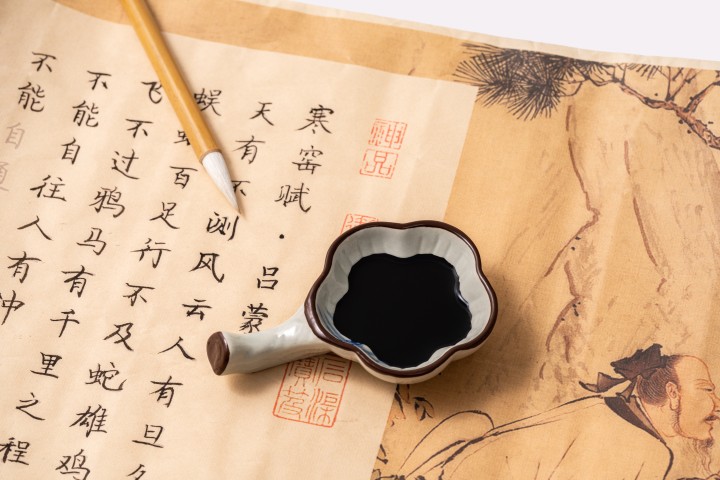 寒窑赋·吕蒙
天有不测风云人有旦
蜈蚣百足行不及蛇雄鸡
飞不过鸦马有千里之程
不能自往人有冲
不能自通
神品